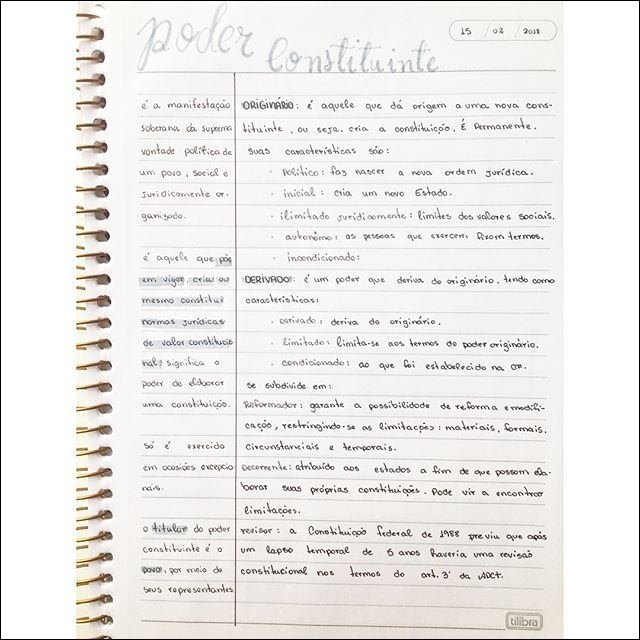 poder
constituinte
15 / 02 / 2018
é a manifestação
soberana da suprema
vontade política de
um povo, social e
juridicamente or-
ganizado.
é aquele que põe
em vigor, cria ou
mesmo constitui
normas jurídicas
de valor constitucio
nal! significa o
poder de elaborar
uma constituição.
só é exercido
em ocasiões excepcio
nais.
o titular do poder
constituinte é o
povo, por meio de
seus representantes.
ORIGINÁRIO: é aquele que dá origem a uma nova cons-
tituinte, ou seja, cria a constituição. É Permanente.
suas características são:
· político: faz nascer a nova ordem jurídica.
· inicial: cria um novo Estado.
· ilimitado jurídicamente: limites dos valores sociais.
· autonômo: as pessoas que exercem fixam termos.
· incondicionado:
DERIVADO: é um poder que deriva do originário. tendo como
características:
· derivado: deriva do originário.
· limitado: limita-se aos termos do poder originário.
· condicionado: ao que foi estabelecido na CF.
se subdivide em:
Reformador: garante a possibilidade de reforma e modifi-
cação, restringindo-se as limitações: materiais, formais,
circunstanciais e temporais.
Decorrente: atribuído aos estados a fim de que possam ela-
borar suas próprias constituições. Pode vir a encontrar
limitações.
revisor: a Constituição federal de 1988 previu que após
um lapso temporal de 5 anos haveria uma revisão
constitucional nos termos do art. 3º da ADCT.
tilibra